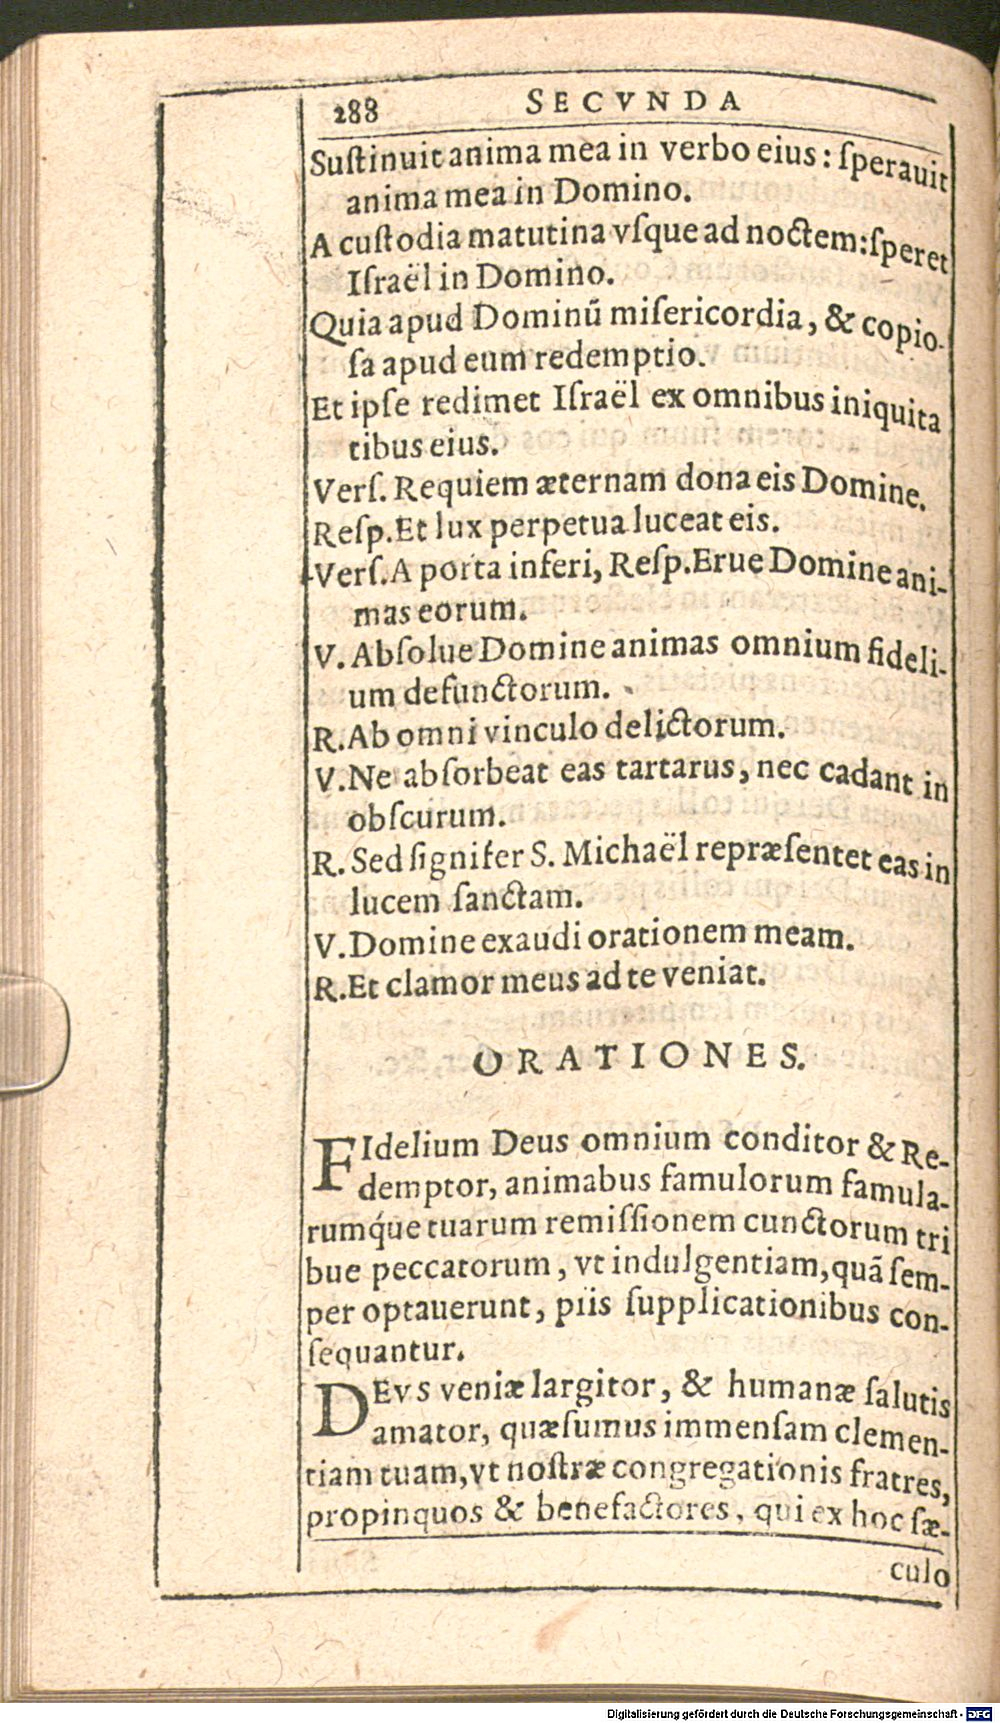 288 SECVNDA
Suſtinuit anima mea in verbo eius: ſperauit
anima mea in Domino.
A cuſtodia matutina vſque ad noctem: ſperet
Iſraël in Domino.
Quia apud Dominū miſericordia, & copio-
ſa apud eum redemptio.
Et ipſe redimet Iſraël ex omnibus iniquita
tibus eius.
Verſ. Requiem æternam dona eis Domine.
Reſp. Et lux perpetua luceat eis.
Verſ. A porta inferi, Reſp. Erue Domine ani-
mas eorum.
V. Abſolue Domine animas omnium fideli-
um defunctorum.
R. Ab omni vinculo delictorum.
V. Ne abſorbeat eas tartarus, nec cadant in
obſcurum.
R. Sed ſignifer S. Michaël repræſentet eas in
lucem ſanctam.
V. Domine exaudi orationem meam.
R. Et clamor meus ad te veniat.
ORATIONES.
FIdelium Deus omnium conditor & Re-
demptor, animabus famulorum famula-
rumq́ue tuarum remiſſionem cunctorum tri
bue peccatorum, vt indulgentiam, quā ſem-
per optauerunt, piis ſupplicationibus con-
ſequantur.
DEVS veniæ largitor, & humanæ ſalutis
amator, quæſumus immenſam clemen-
tiam tuam, vt noſtræ congregationis fratres,
propinquos & benefactores, qui ex hoc ſæ-
culo
Digitalisierung gefördert durch die Deutsche Forschungsgemeinschaft - DFG